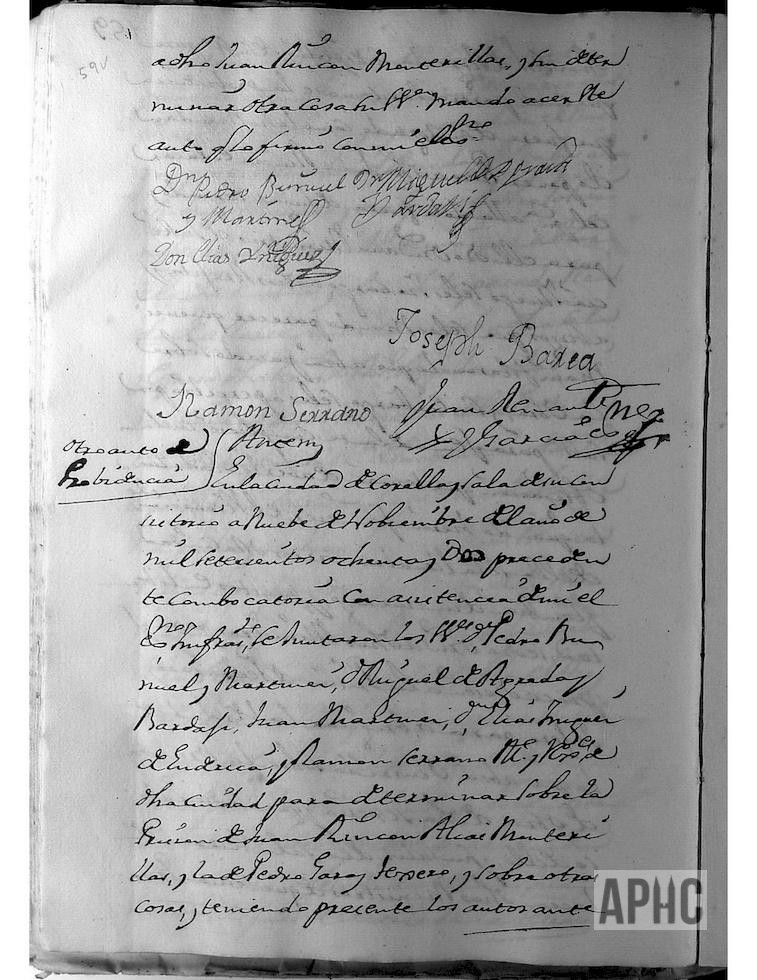 59
59v
adho Juan Rincon Monterillas, y sin deter
minar otra cosa sus Ss. mando acer este
auto q lo firmó con mi el ss.no
Dn Pedro Buñuel Dn Miguel de Agreda
y Martinez y Bardaxi
Don Elias Yñiguez
Joseph Barea
Ramon Serrano Juan
Antemi Garcia
otro auto de
Probidencia
En la ciudad de Corella y sala de su con
sistorio a Nuebe de Nobiembre del año de
mil setecientos ochenta y Dos preceden
te Combocatoria Con asistencia de mi el
ss.no infras.to, se Juntaron los Ss.es Dn Pedro Bu
nuel y Martinez, Dn Miguel de Agreda y
Bardaji, Juan Martinez, Dn Elias Iniguez
de , y Ramon Serrano Al.e y de
dha ciudad para determinar sobre la
Prision de Juan Rincon Alias Monteri
llas, y la de Pedro Garay terzero, y sobre otras
cosas, y teniendo precente los autos ante
APHC